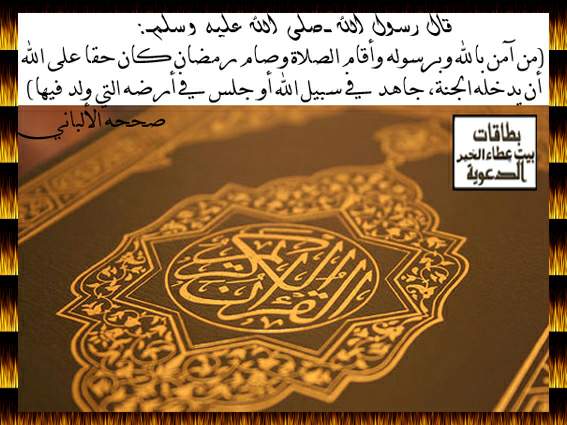 قال رسول الله -صلى الله عليه وسلم-:
(من آمن بالله وبرسوله وأقام الصلاة وصام رمضان كان حقا على الله
أن يدخله الجنة، جاهد في سبيل الله أو جلس في أرضه التي ولد فيها)
صححه الألباني
بطاقات
بيت عطاء الخير
الدعوية
القرآن الكريم